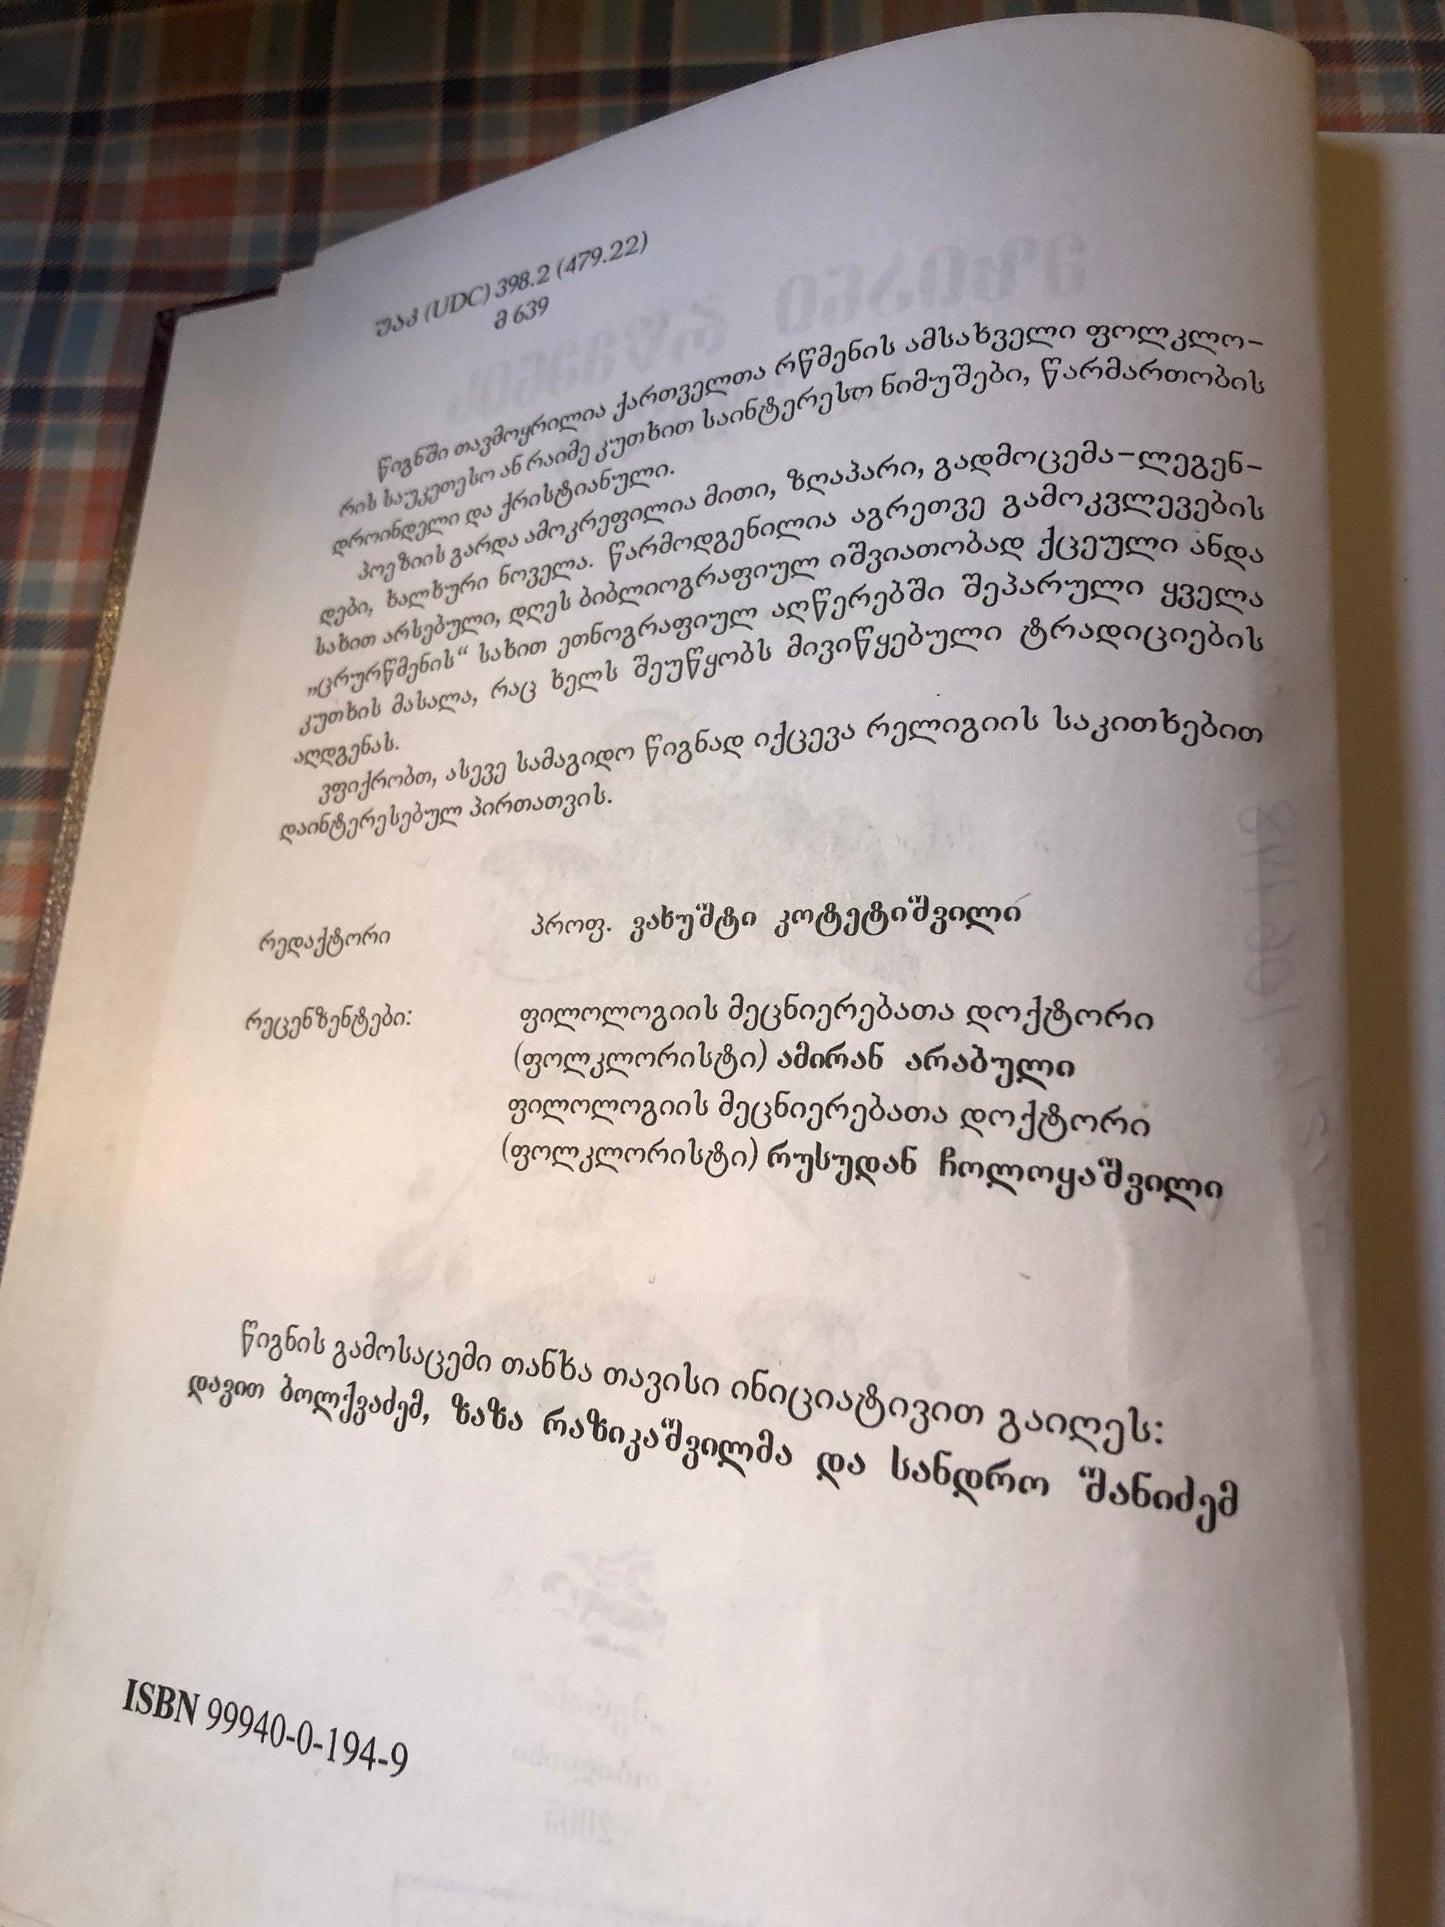 უაკ (UDC) 398.2 (479.22)
მ 639
წიგნში თავმოყრილია ქართველთა რწმენის ამსახველი ფოლკლო-
რის საუკეთესო ან რაიმე კუთხით საინტერესო ნიმუშები, წარმართობის
დროინდელი და ქრისტიანული.
პოეზიის გარდა ამოკრეფილია მითი, ზღაპარი, გადმოცემა-ლეგენ-
დები, ხალხური ნოველა. წარმოდგენილია აგრეთვე გამოკვლევების
სახით არსებული, დღეს ბიბლიოგრაფიულ იშვიათობად ქცეული ანდა
„ცრურწმენის“ სახით ეთნოგრაფიულ აღწერებში შეპარული ყველა
კუთხის მასალა, რაც ხელს შეუწყობს მივიწყებული ტრადიციების
აღდგენას.
ვფიქრობთ, ასევე სამაგიდო წიგნად იქცევა რელიგიის საკითხებით
დაინტერესებულ პირთათვის.
რედაქტორი პროფ. ვახუშტი კოტეტიშვილი
რეცენზენტები: ფილოლოგიის მეცნიერებათა დოქტორი
(ფოლკლორისტი) ამირან არაბული
ფილოლოგიის მეცნიერებათა დოქტორი
(ფოლკლორისტი) რუსუდან ჩოლოყაშვილი
წიგნის გამოსაცემი თანხა თავისი ინიციატივით გაიღეს:
დავით ბოლქვაძემ, ზაზა რაზიკაშვილმა და სანდრო შანიძემ
ISBN 99940-0-194-9